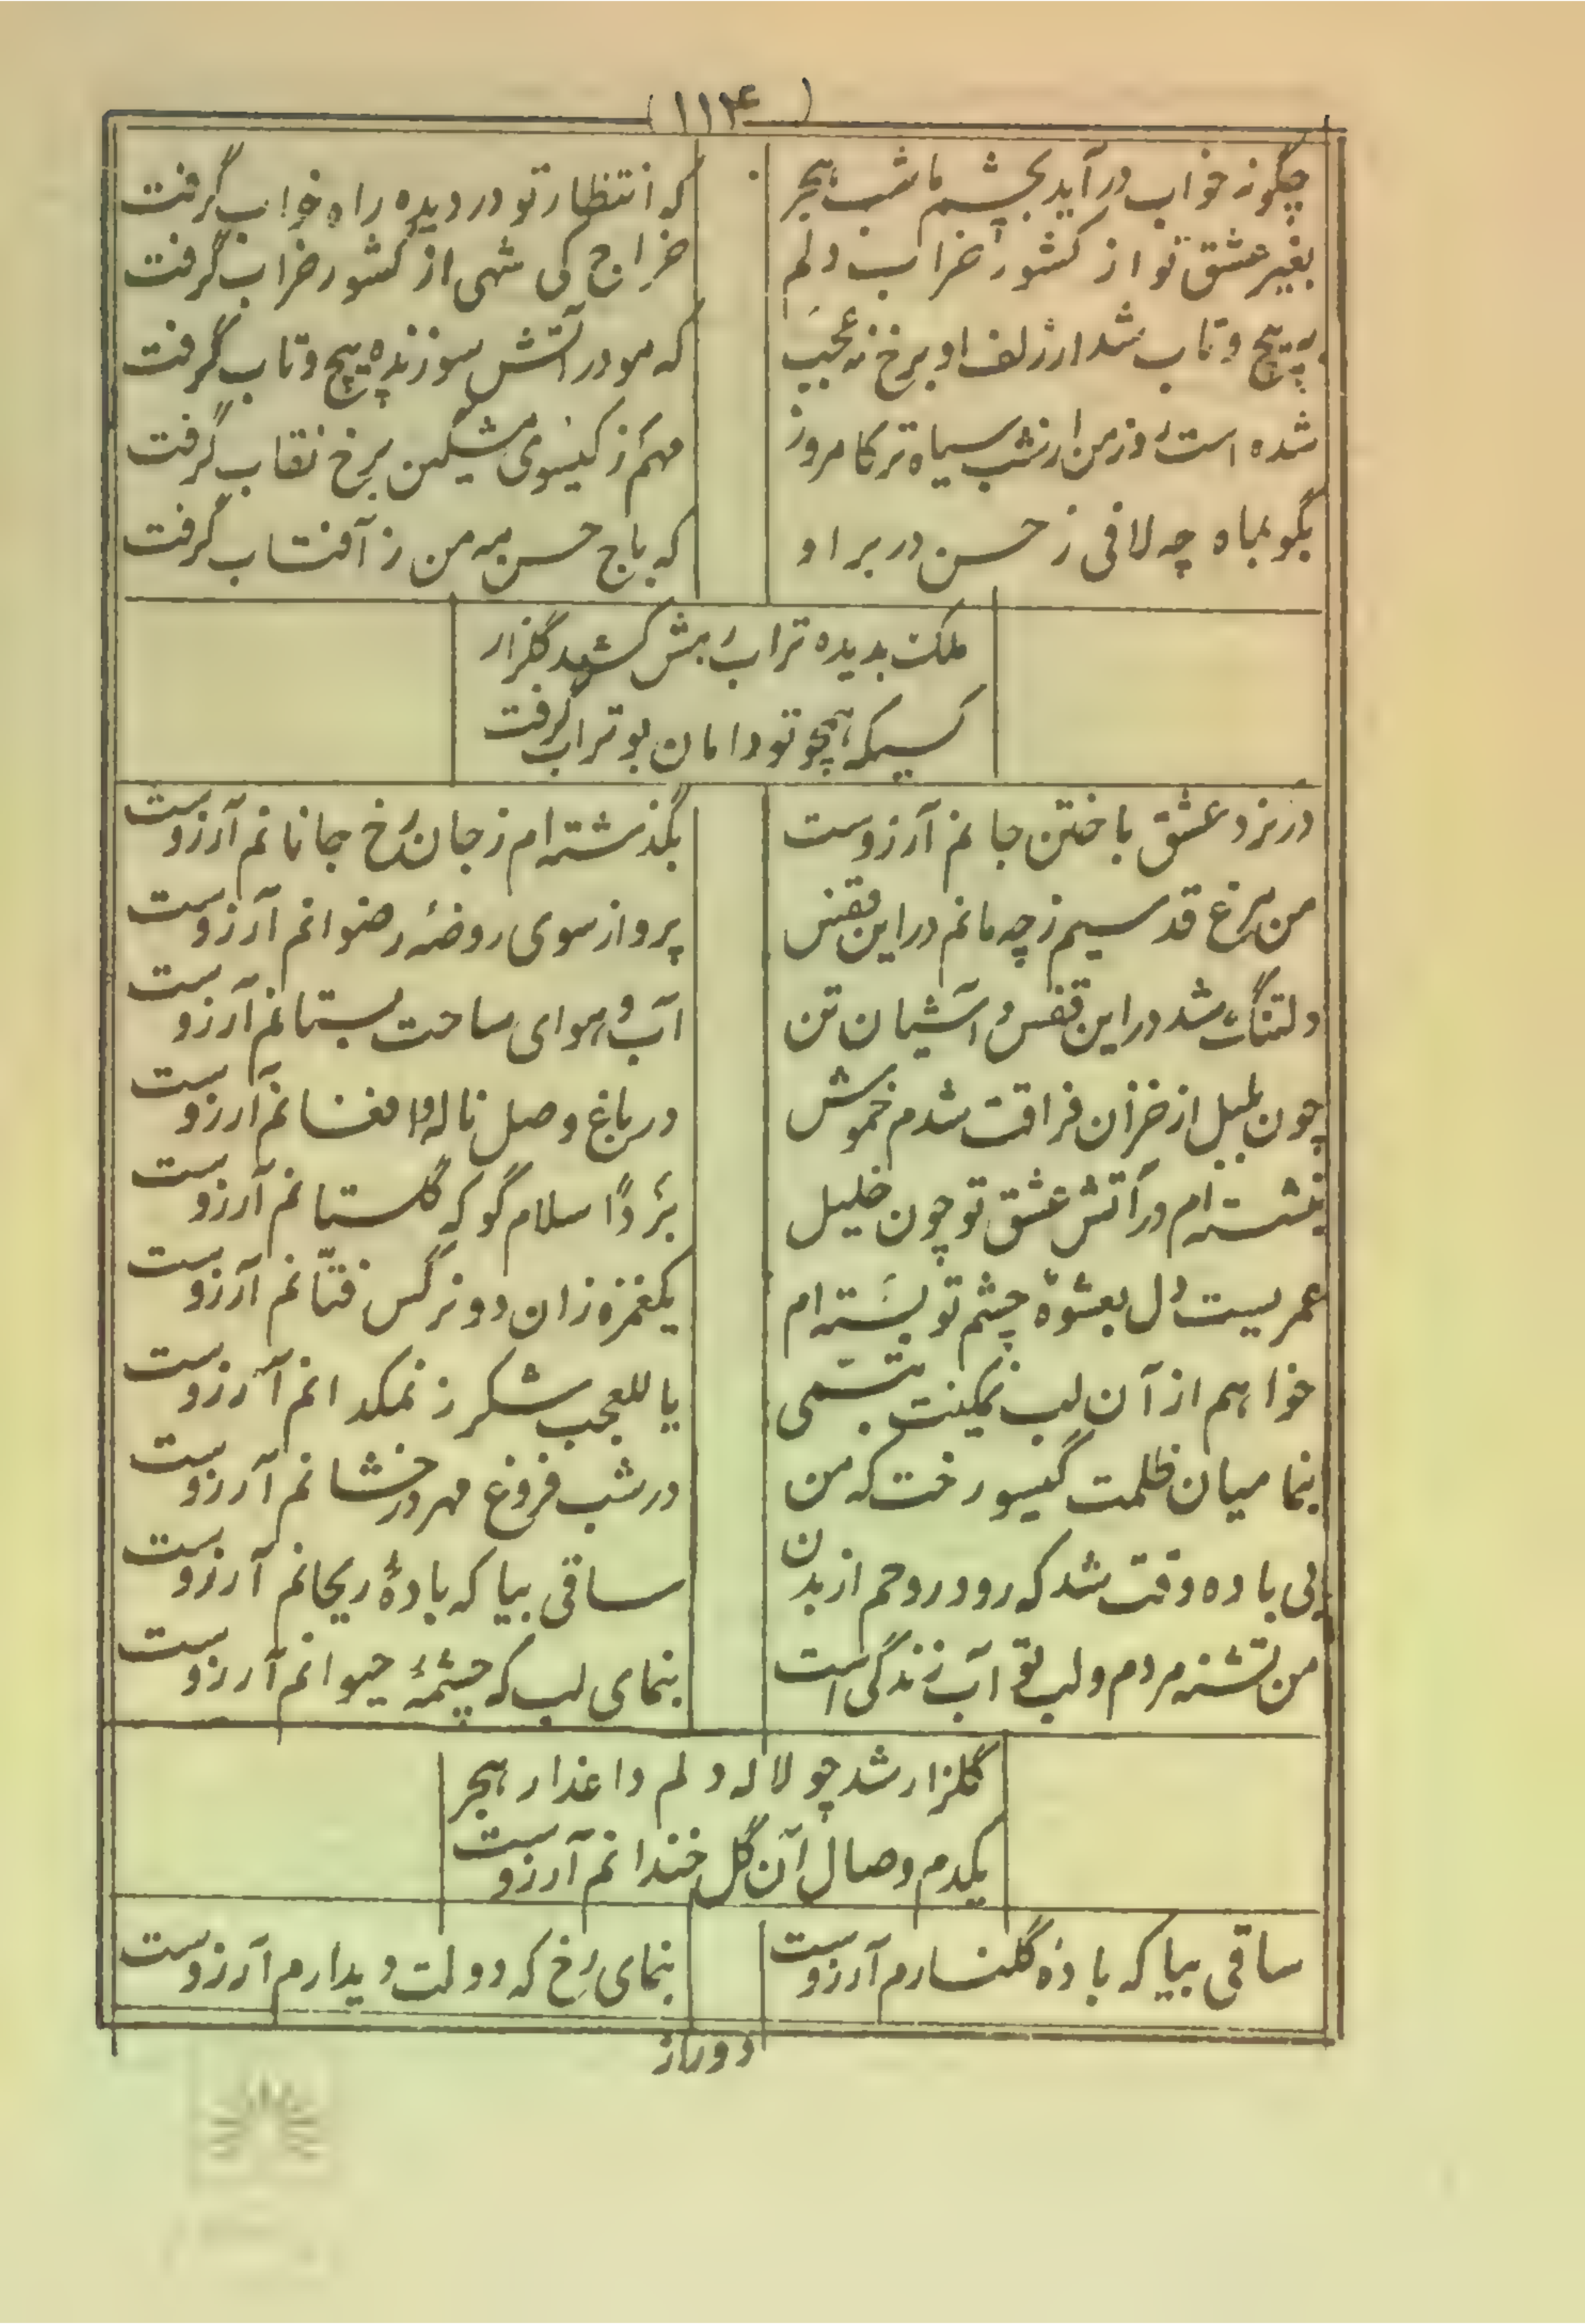 (۱۱۴)
چگونه خواب درآید بچشم ما شب هجر
که انتظار تو در دیده راه خواب گرفت
بغیر عشق تو از کشور خراب دلم
خراج کی شهی از کشور خراب گرفت
به پیچ و تاب شد ار زلف او برخ نه عجب
که مو در آتش سوزنده پیچ و تاب گرفت
شده است روز من ار شب سیاه تر کامروز
مهم ز گیسوی مشکین برخ نقاب گرفت
بگو بماه چه لافی ز حسن در بر او
که باج حسن مه من ز آفتاب گرفت
ملک بدیده ترابش کشد گلزار
کسیکه همچو تو دامان بوتراب گرفت
در نرد عشق باختن جانم آرزوست
بگذشته‌ام ز جان رخ جانانم آرزوست
من مرغ قدسیم ز چه مانم در این قفس
پرواز سوی روضهٔ رضوانم آرزوست
دلتنگ شد در این قفس و آشیان تن
آب و هوای ساحت بستانم آرزوست
چون بلبل از خزان فراقت شدم خموش
در باغ وصل ناله و افغانم آرزوست
بنشسته‌ام در آتش عشق تو چون خلیل
برداً سلام گو که گلستانم آرزوست
عمریست دل بعشوهٔ چشم تو بسته‌ام
یکغمزه زان دو نرگس فتّانم آرزوست
خواهم از آن لب نمکینت تبسّمی
یا للعجب شکر ز نمکدانم آرزوست
بنما میان ظلمت گیسو رخت که من
در شب فروغ مهر درخشانم آرزوست
بی باده وقت شد که رود روحم از بدن
ساقی بیا که بادهٔ ریحانم آرزوست
من تشنه مردم و لب تو آب زندگی است
بنمای لب که چشمهٔ حیوانم آرزوست
گلزار شد چو لاله دلم داغدار هجر
یکدم وصال آن گل خندانم آرزوست
ساقی بیا که بادهٔ گلنارم آرزوست
بنمای رخ که دولت دیدارم آرزوست